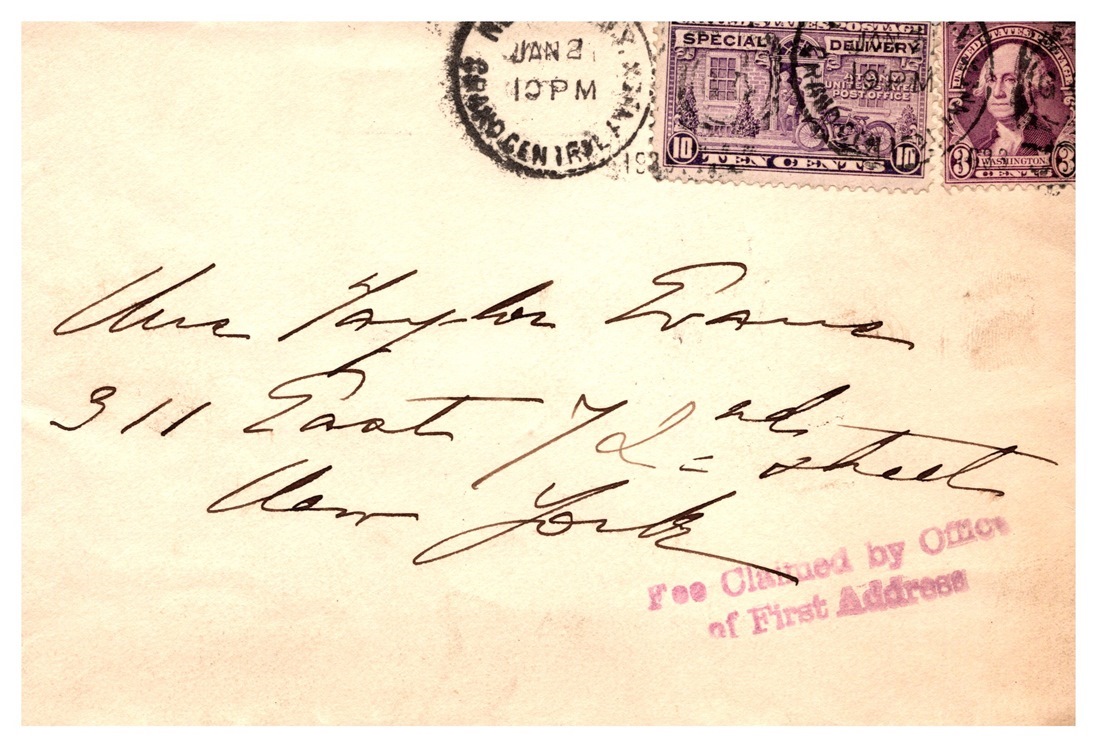 JAN 2
10 PM
GRAND CENTRAL ANNEX
SPECIAL DELIVERY
UNITED STATES
POST OFFICE
10 TEN CENTS 10
UNITED STATES POSTAGE
3 WASHINGTON 3
CENTS
Mrs Taylor Evans
311 East 72nd Street
New York
Fee Claimed by Office
of First Address